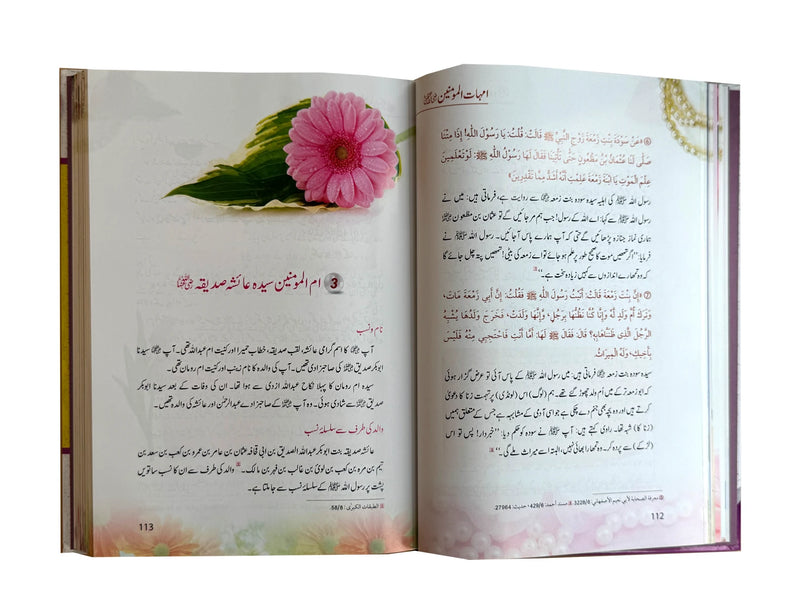 امہات المومنین
⑥ «عَنْ سَوْدَةَ بِنْتِ زَمْعَةَ زَوْجِ النَّبِيِّ ﷺ قَالَتْ: قُلْتُ: يَا رَسُولَ اللّٰهِ! إِذَا مِتْنَا
صَلَّى لَنَا عُثْمَانُ بْنُ مَظْعُونٍ حَتَّى تَأْتِيَنَا فَقَالَ لَهَا رَسُولُ اللّٰهِ ﷺ: لَوْ تَعْلَمِينَ
عِلْمَ الْمَوْتِ يَا ابْنَةَ زَمْعَةَ عَلِمْتِ أَنَّهُ أَشَدُّ مِمَّا تَقْدِرِينَ»
رسول اللہ ﷺ کی اہلیہ سیدہ سودہ بنت زمعہ سے روایت ہے، فرماتی ہیں: میں نے
رسول اللہ ﷺ سے کہا: اے اللہ کے رسول! جب ہم مر جائیں گے تو عثمان بن مظعون
ہماری نماز جنازہ پڑھائیں گے حتی کہ آپ ہمارے پاس آ جائیں۔ رسول اللہ ﷺ نے
فرمایا: ’’اگر تمھیں موت کا صحیح طور پر علم ہو جائے تو اے زمعہ کی بیٹی! تمھیں پتہ چل جائے گا
کہ وہ تمھارے اندازوں سے کہیں زیادہ سخت ہے۔‘‘
⑦ «إِنَّ بِنْتَ زَمْعَةَ قَالَتْ: أَتَيْتُ رَسُولَ اللّٰهِ ﷺ فَقُلْتُ: إِنَّ أَبِي زَمْعَةَ مَاتَ،
وَتَرَكَ أُمَّ وَلَدٍ لَهُ وَإِنَّا كُنَّا نَظُنُّهَا بِرَجُلٍ، وَإِنَّهَا وَلَدَتْ، فَخَرَجَ وَلَدُهَا يُشْبِهُ
الرَّجُلَ الَّذِي ظَنَنَّاهَا بِهِ؟ قَالَ: فَقَالَ ﷺ لَهَا: أَمَّا أَنْتِ فَاحْتَجِبِي مِنْهُ فَلَيْسَ
بِأَخِيكِ، وَلَهُ الْمِيرَاثُ»
سیدہ سودہ بنت زمعہ فرماتی ہیں: میں رسول اللہ ﷺ کے پاس آئی تو عرض گزار ہوئی
کہ ابو زمعہ ترکے میں ام ولد چھوڑ گئے تھے۔ ہم (لوگ) اس (لونڈی) پر تہمت زنا کا دعویٰ
کرتے ہیں اور وہ بچہ بھی جنم دے چکی ہے جو اسی آدمی کے مشابہ ہے جس کے متعلق ہمیں
(زنا کا) شبہ تھا۔ راوی کہتے ہیں: آپ ﷺ نے سودہ کو حکم دیا: ’’خبردار! پس تو اس
(لڑکے) سے پردہ کر۔ وہ تمھارا بھائی نہیں، البتہ اسے میراث ملے گی۔‘‘
معرفة الصحابة لأبي نعيم الأصفهاني: 3228/6. مسند أحمد: 429/6، حديث: 27964.
112
3 ام المومنین سیدہ عائشہ صدیقہ
نام و نسب
آپ کا اسم گرامی عائشہ، لقب صدیقہ، خطاب حمیرا اور کنیت ام عبداللہ تھی۔ آپ سیدنا
ابوبکر صدیق کی صاحبزادی تھیں۔ آپ کی والدہ کا نام زینب اور کنیت ام رومان تھی۔
سیدہ ام رومان کا پہلا نکاح عبداللہ ازدی سے ہوا تھا۔ ان کی وفات کے بعد سیدنا ابوبکر
صدیق سے شادی ہوئی۔ وہ آپ کے صاحبزادے عبدالرحمٰن اور عائشہ کی والدہ تھیں۔
والد کی طرف سے سلسلۂ نسب
عائشہ صدیقہ بنت ابوبکر عبداللہ الصدیق بن ابی قحافہ عثمان بن عامر بن عمرو بن کعب بن سعد بن
تیم بن مرہ بن کعب بن لوی بن غالب بن فہر بن مالک۔ والد کی طرف سے ان کا نسب ساتویں
پشت پر رسول اللہ ﷺ کے سلسلۂ نسب سے جا ملتا ہے۔
الطبقات الكبرى: 58/8.
113